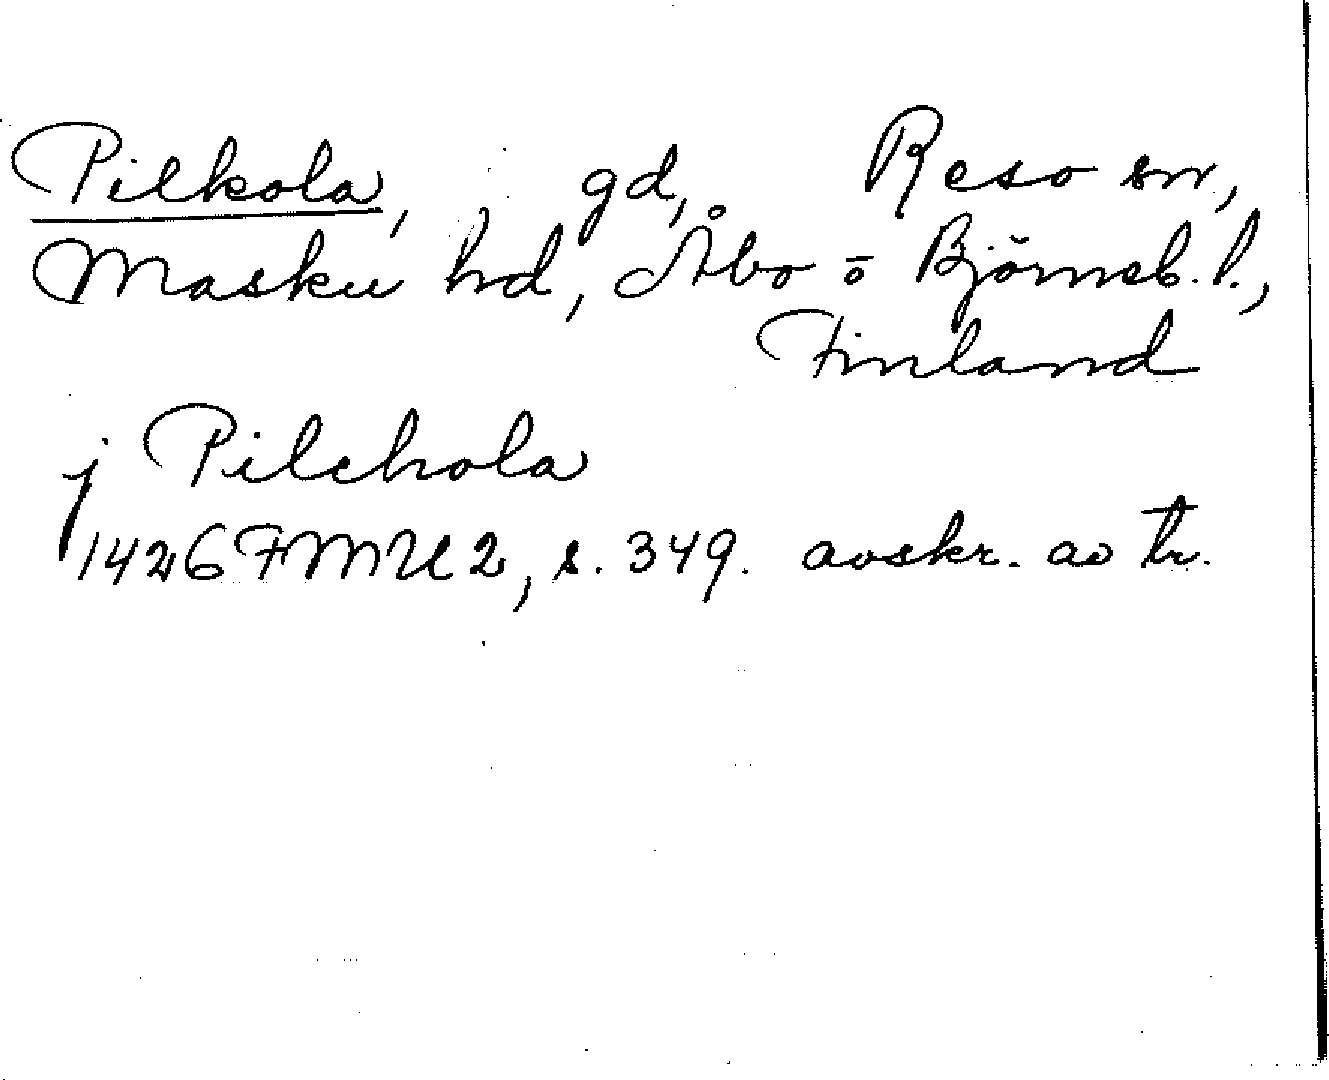 Pilkola, gd, Reso sn,
Masku hd, Åbo o Björneb. l.,
Finland
j Pilchola
1426 FMU 2, s. 349. avskr. av tr.